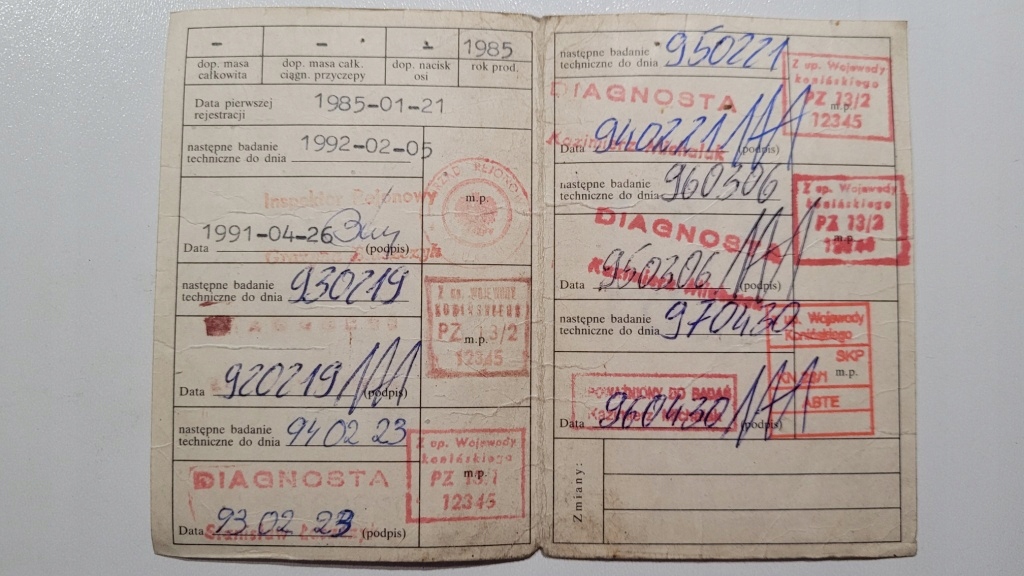 – – – 1985
dop. masa całkowita
dop. masa całk. ciągn. przyczepy
dop. nacisk osi
rok prod.
Data pierwszej rejestracji 1985-01-21
następne badanie
techniczne do dnia 1992-02-05
m.p.
Inspektor Rejonowy
Data 1991-04-26 (podpis)
następne badanie
techniczne do dnia 930219
Z up. WOJEWODY
KONIŃSKIEGO
PZ 13/2
m.p.
12345
Data 920219 (podpis)
następne badanie
techniczne do dnia 94 02 23
Z up. Wojewody
konińskiego
m.p.
PZ 13/1
12345
DIAGNOSTA
Data 93.02 23 (podpis)
następne badanie
techniczne do dnia 950221
Z up. Wojewody
konińskiego
PZ 13/2
m.p.
12345
DIAGNOSTA
Kazimierz Michalak
Data 940221 (podpis)
następne badanie
techniczne do dnia 960306
Z up. Wojewody
konińskiego
PZ 13/2
m.p.
12345
DIAGNOSTA
Kazimierz
Data 950306 (podpis)
następne badanie
techniczne do dnia 970430
Z up. Wojewody
Konińskiego
SKP
m.p.
ABTE
DO BADAŃ
Data 960430 (podpis)
Zmiany: